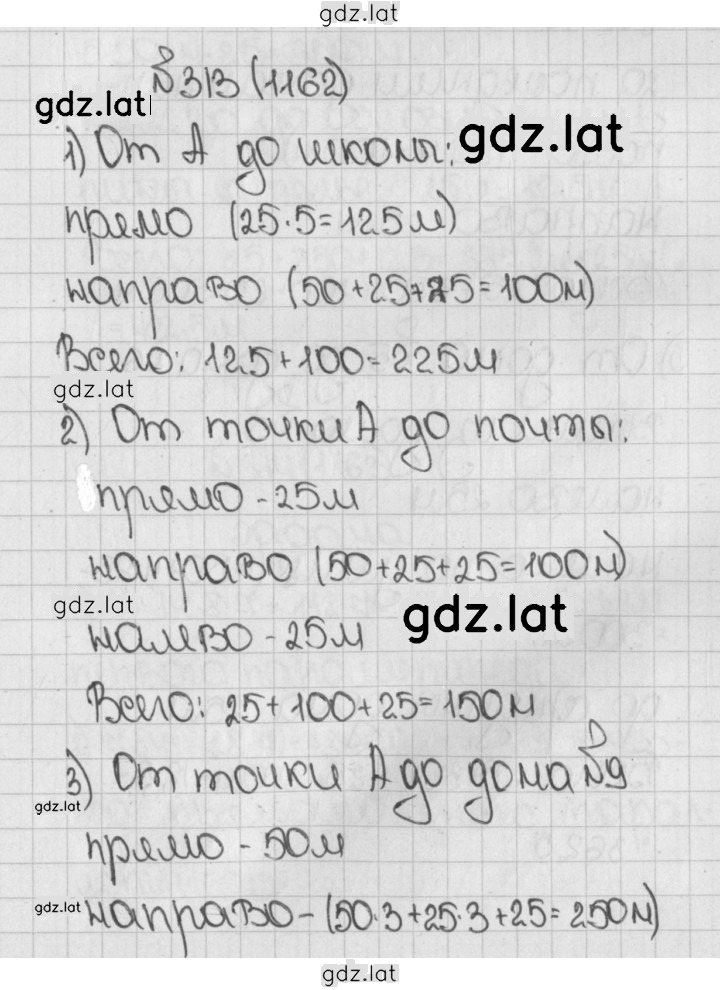 gdz.lat
№313 (1162)
gdz.lat
1) От А до школы:
gdz.lat
прямо (25·5=125м)
направо (50+25+25=100м)
Всего: 125+100=225м
gdz.lat
2) От точки А до почты:
прямо - 25м
направо (50+25+25=100м)
gdz.lat
gdz.lat
налево - 25м
Всего: 25+100+25=150м
3) От точки А до дома №9
gdz.lat
прямо - 50м
gdz.lat
направо - (50·3+25·3+25=250м)
gdz.lat